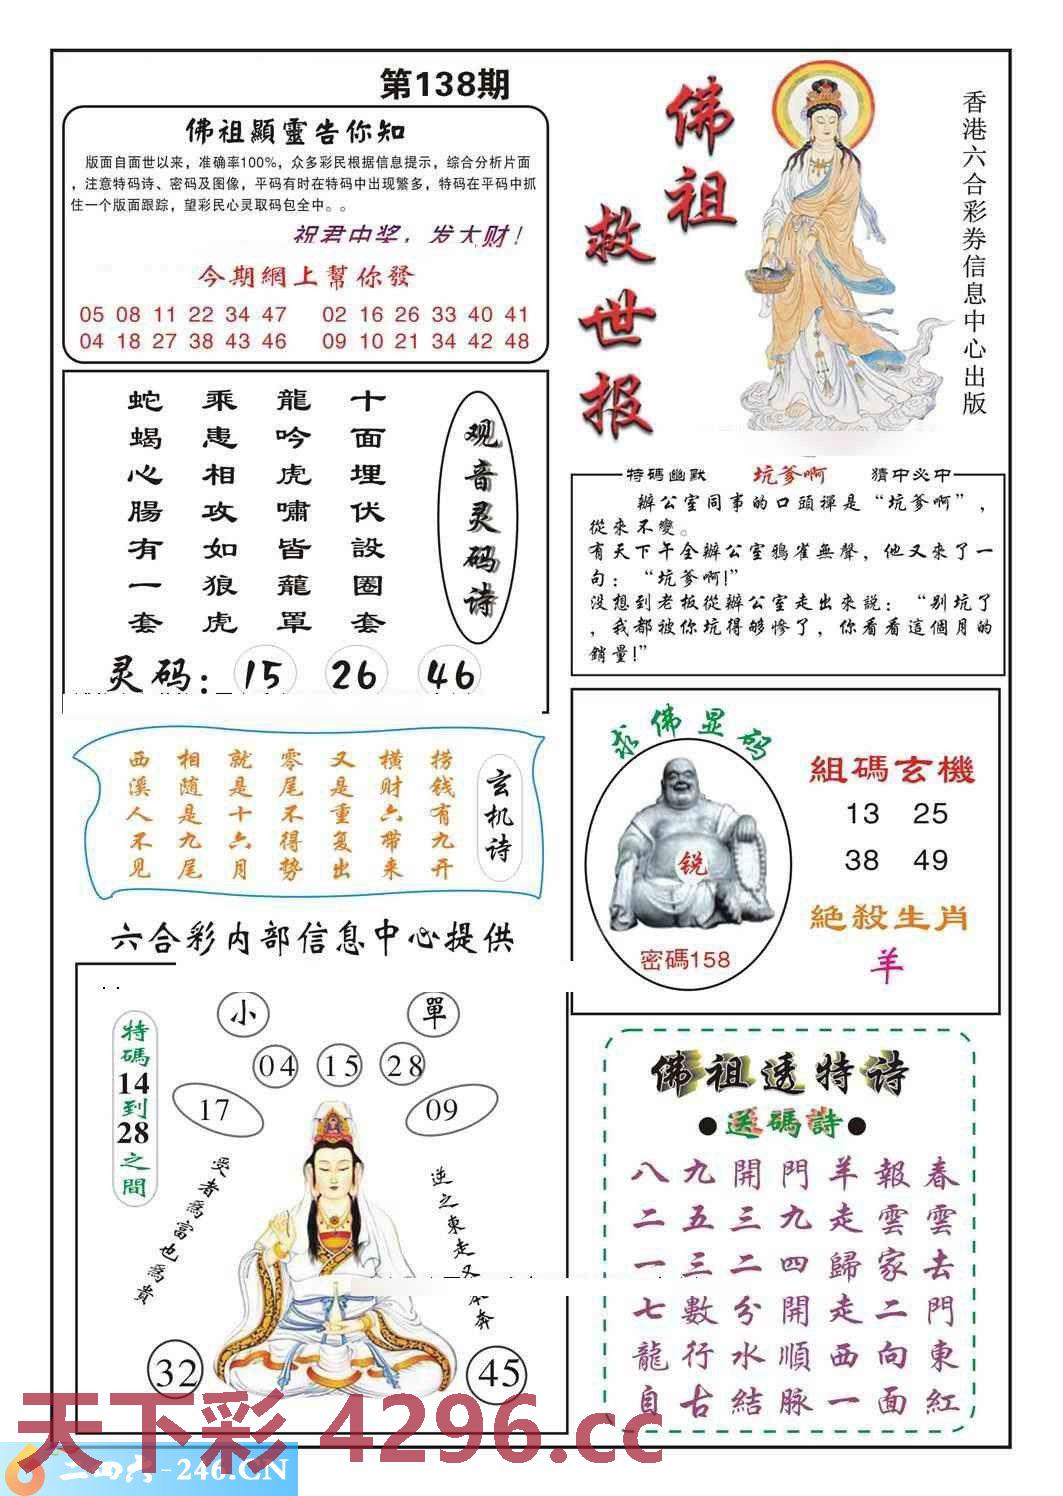 第138期
佛祖顯靈告你知
版面自面世以来，准确率100%，众多彩民根据信息提示，综合分析片面
，注意特码诗、密码及图像，平码有时在特码中出现繁多，特码在平码中抓
住一个版面跟踪，望彩民心灵取码包全中。。
祝君中奖，发大财！
今期網上幫你發
05 08 11 22 34 47 02 16 26 33 40 41
04 18 27 38 43 46 09 10 21 34 42 48
佛祖
救世报
香港六合彩券信息中心出版
观音灵码诗
十面埋伏設圈套
龍吟虎嘯皆龍罩
乘患相攻如狼虎
蛇蝎心腸有一套
灵码：15 26 46
特碼幽默 坑爹啊 猜中必中
辦公室同事的口頭禪是“坑爹啊”，
從來不變。
有天下午全辦公室鴉雀無聲，他又來了一
句：“坑爹啊!”
沒想到老板從辦公室走出來説：“别坑了
，我都被你坑得够慘了，你看看這個月的
銷量!”
玄机诗
捞钱有九开
横财六带来
又是重复出
零尾不得势
就是十六月
相随是九尾
西溪人不见
求佛显码
锐
密碼158
組碼玄機
13 25
38 49
絶殺生肖
羊
六合彩内部信息中心提供
特碼14到28之間
小 單
04 15 28
17 09
受者爲富也爲貴
逆之東走又奔
32 45
佛祖透特诗
●送碼詩●
春雲去門東紅
報雲家二向面
羊走歸走西一
門九四開順脉
開三二分水結
九五三數行古
八二一七龍自
天下彩 4296.cc
二四六-246.CN